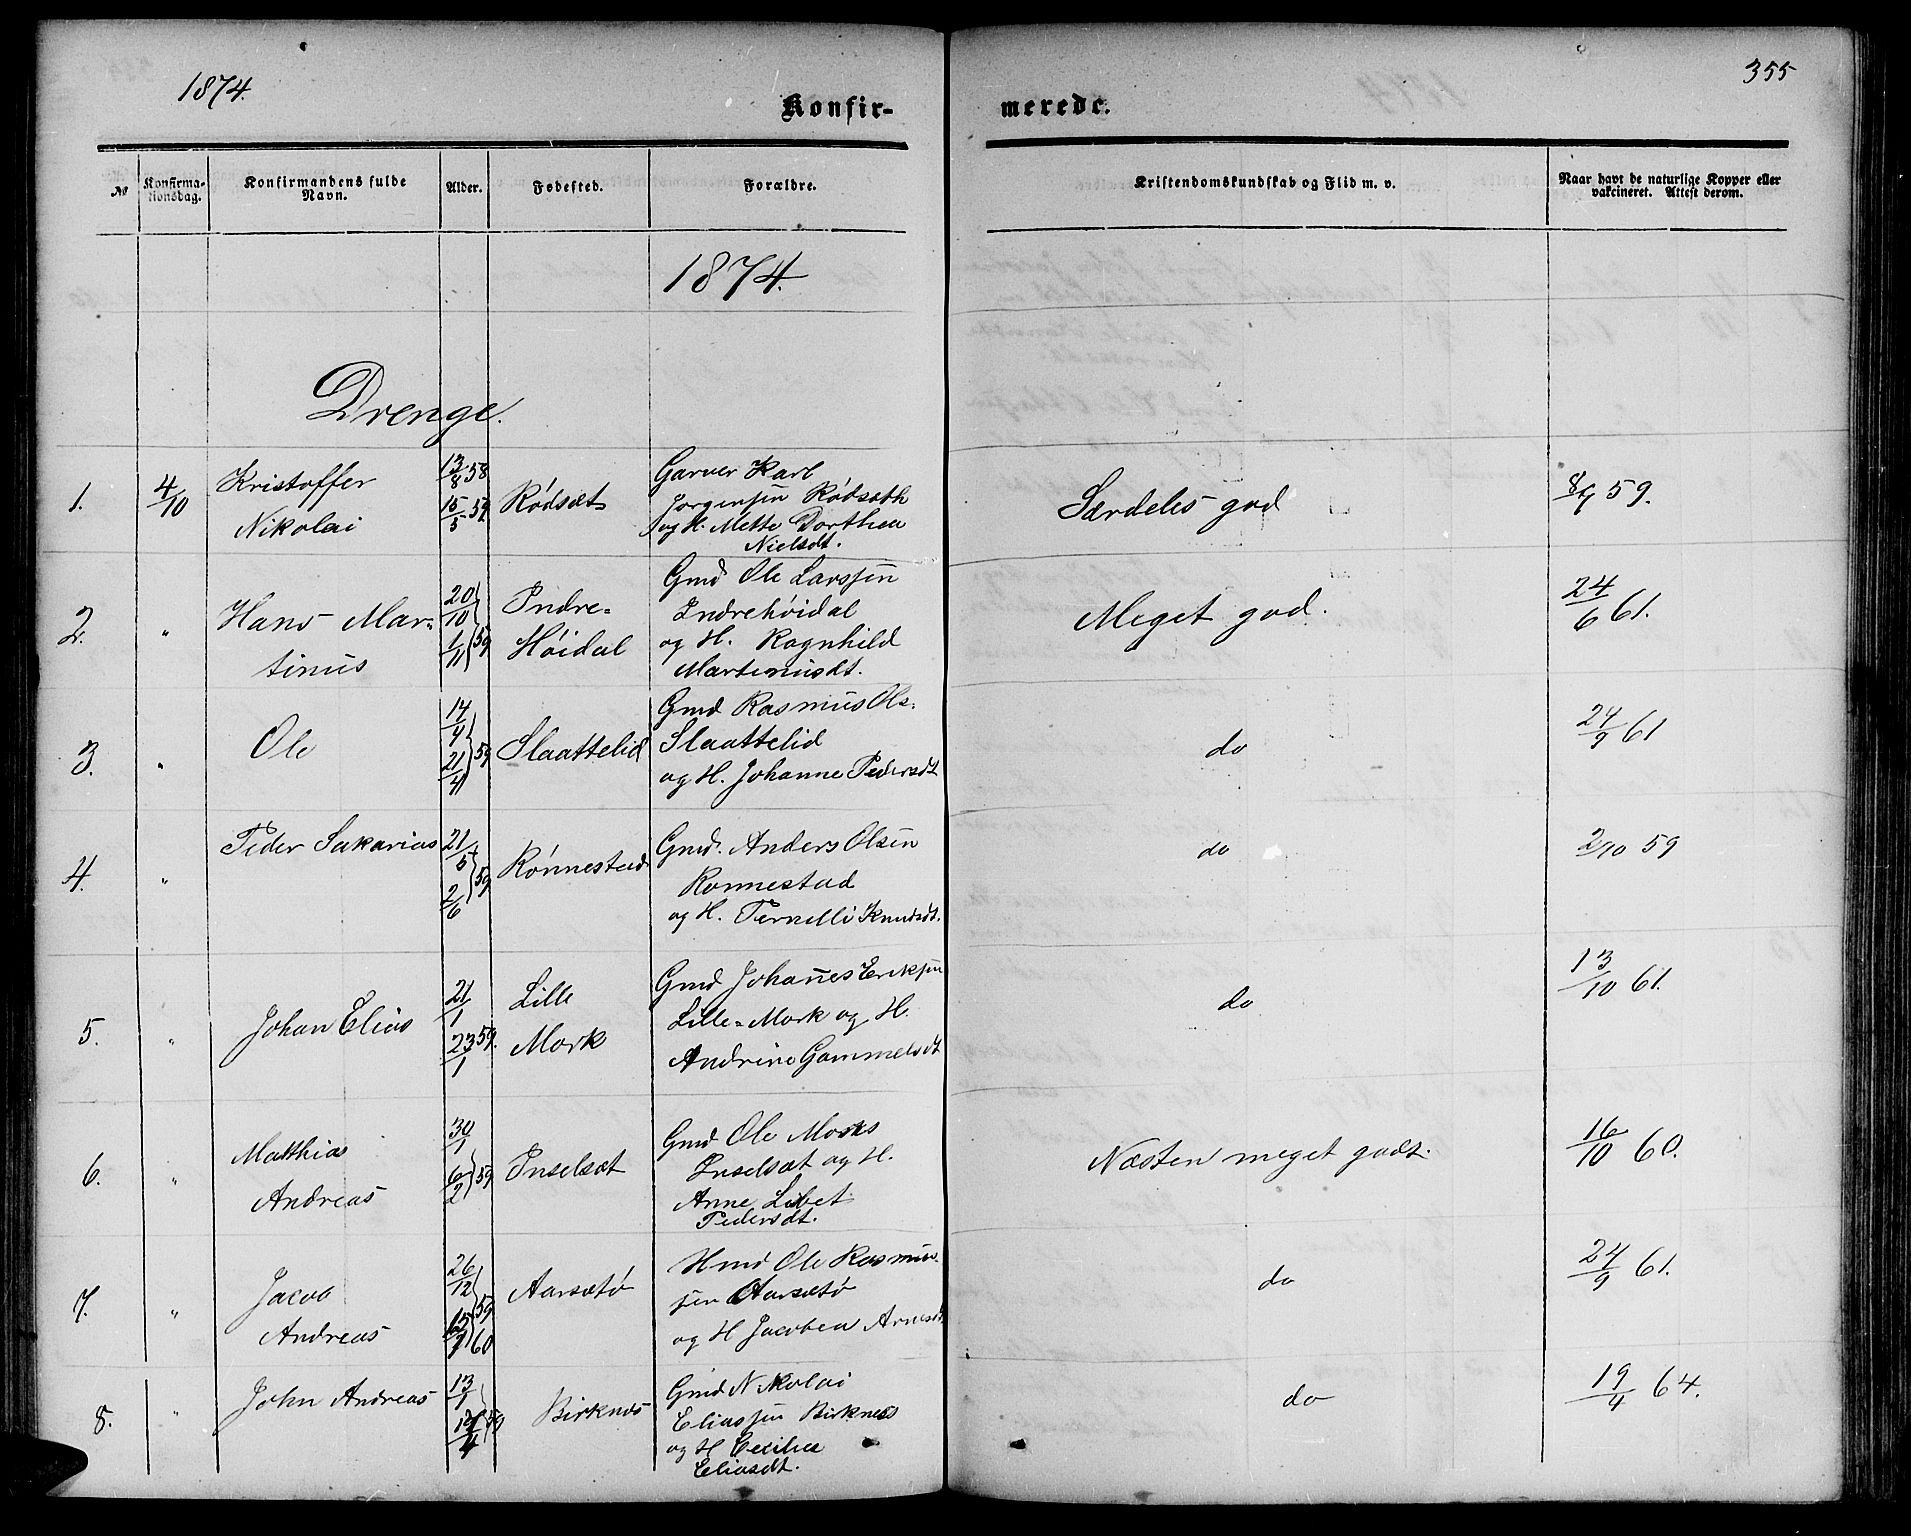 1874.
355
Konfir-
merede.
№
Konfirma-
tionsdag.
Konfirmandens fulde
Navn.
Alder.
Fødested.
Forældre.
Kristendomskundskab og Flid m. v.
Naar havt de naturlige Kopper eller
vakcineret. Attest derom.
1874.
Drenge.
1. 4/10 Kristoffer
Nikolai
13/8 58
15/5 59
Rødsæt
Garver Karl
Jørgensen Rødsæth
og H. Mette Dorthea
Nielsdt.
Særdeles god
8/9 59.
2. " Hans Mar-
tinus
20/10
1/11 59
Indre-
Høidal
Gmd Ole Larssen
Indrehøidal
og H. Ragnhild
Martinusdt.
Meget god.
24/6 61.
3. " Ole
14/4
21/4 59
Slaattelid
Gmd Rasmus Ols.
Slaattelid
og H. Johanne Pedersdt
do
24/9 61
4. " Peder Sakarias
21/5
2/6 59
Rønnestad
Gmd. Anders Olsen
Rønnestad
og H. Pernelli Knudsdt.
do
2/10 59
5. " Johan Elias
21/1
23/1 59.
Lille
Mork
Gmd Johannes Eriksen
Lille-Mork og H.
Andrine Gammelsdt
do
13/10 61.
6. " Matthias
Andreas
30/1
6/2 59
Inselsæt
Gmd Ole Morks
Inselsæt og H.
Anne Lisbet
Pedersdt.
Næsten meget godt.
16/10 60.
7. " Jacob
Andreas
26/12 59
60
Aarsætø
Hmd Ole Rasmus-
sen Aarsætø
og H Jacobea Arnesdt
do
24/9 61.
8. " John Andreas
13/1
59
Birknes
Gmd Nikolai
Eliassen Birknes
og H Cecilie
Eliasdt.
do
19/4 64.